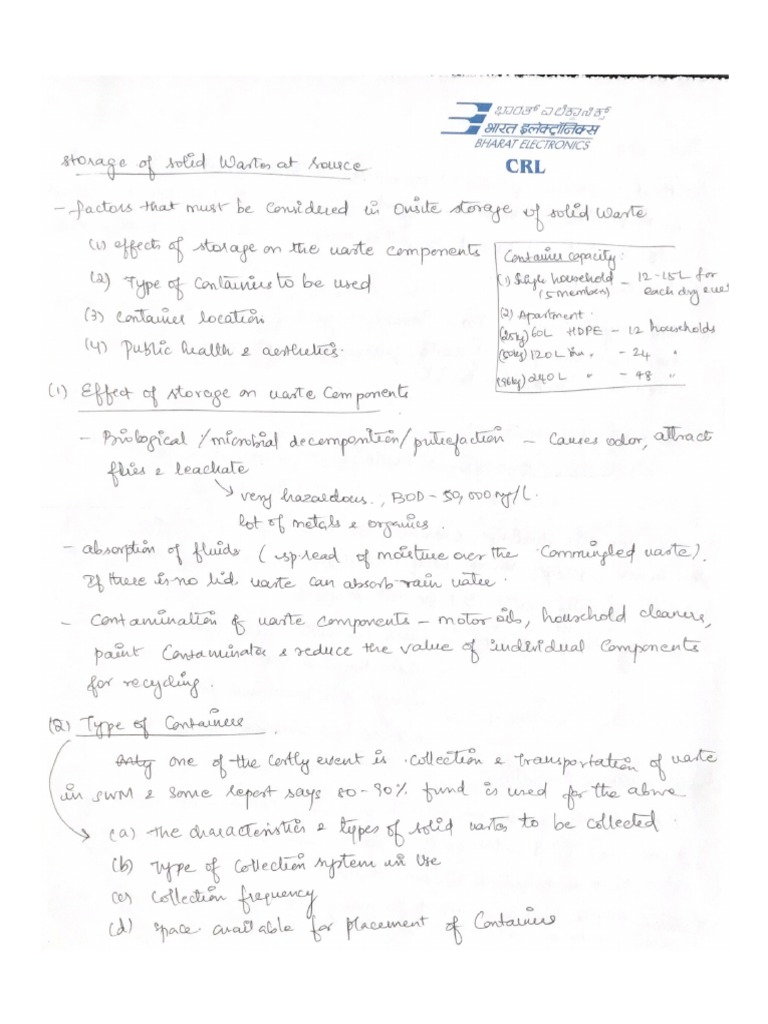 ಭಾರತ್ ಎಲೆಕ್ಟ್ರಾನಿಕ್ಸ್
भारत इलेक्ट्रॉनिक्स
BHARAT ELECTRONICS
CRL
Storage of solid Wastes at source
- factors that must be considered in Onsite storage of solid Waste
(1) effects of storage on the waste components
(2) Type of Containers to be used
(3) Container location
(4) Public health & aesthetics.
Container capacity:
(1) Single household - 12-15L for
(5 members) each dry & wet
(2) Apartment.
(25kg) 60L HDPE - 12 households
(50kg) 120L " - 24 "
(96kg) 240L " - 48 "
(1) Effect of storage on waste Components
- Biological / microbial decomposition / putrefaction - Causes odor, attract
flies & leachate
very hazardous, BOD - 50,000 mg/L.
lot of metals & organics.
- absorption of fluids (spread of moisture over the Commingled waste).
If there is no lid waste can absorb rain water.
- Contamination of waste components - motor oils, household cleaners,
paint Contaminate & reduce the value of individual Components
for recycling.
(2) Type of Containers
one of the costly event is collection & transportation of waste
in SWM & some report says 80-90% fund is used for the above
(a) the characteristics & types of solid wastes to be collected.
(b) Type of Collection system in use
(c) Collection frequency
(d) space available for placement of Containers